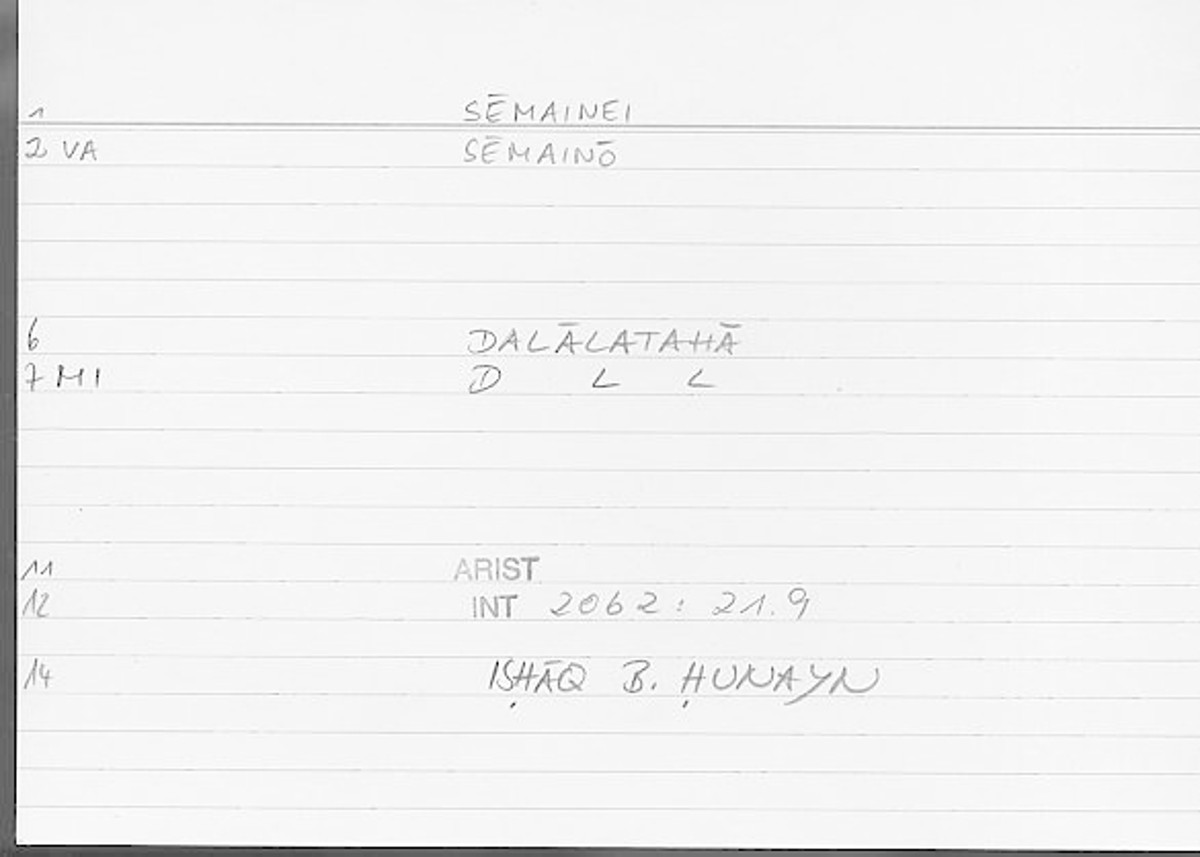 1 SĒMAINEI
2 VA SĒMAINŌ
6 DALĀLATAHĀ
7 MI D L L
11 ARIST
12 INT 2062: 21.9
14 ISḤĀQ B. ḤUNAYN